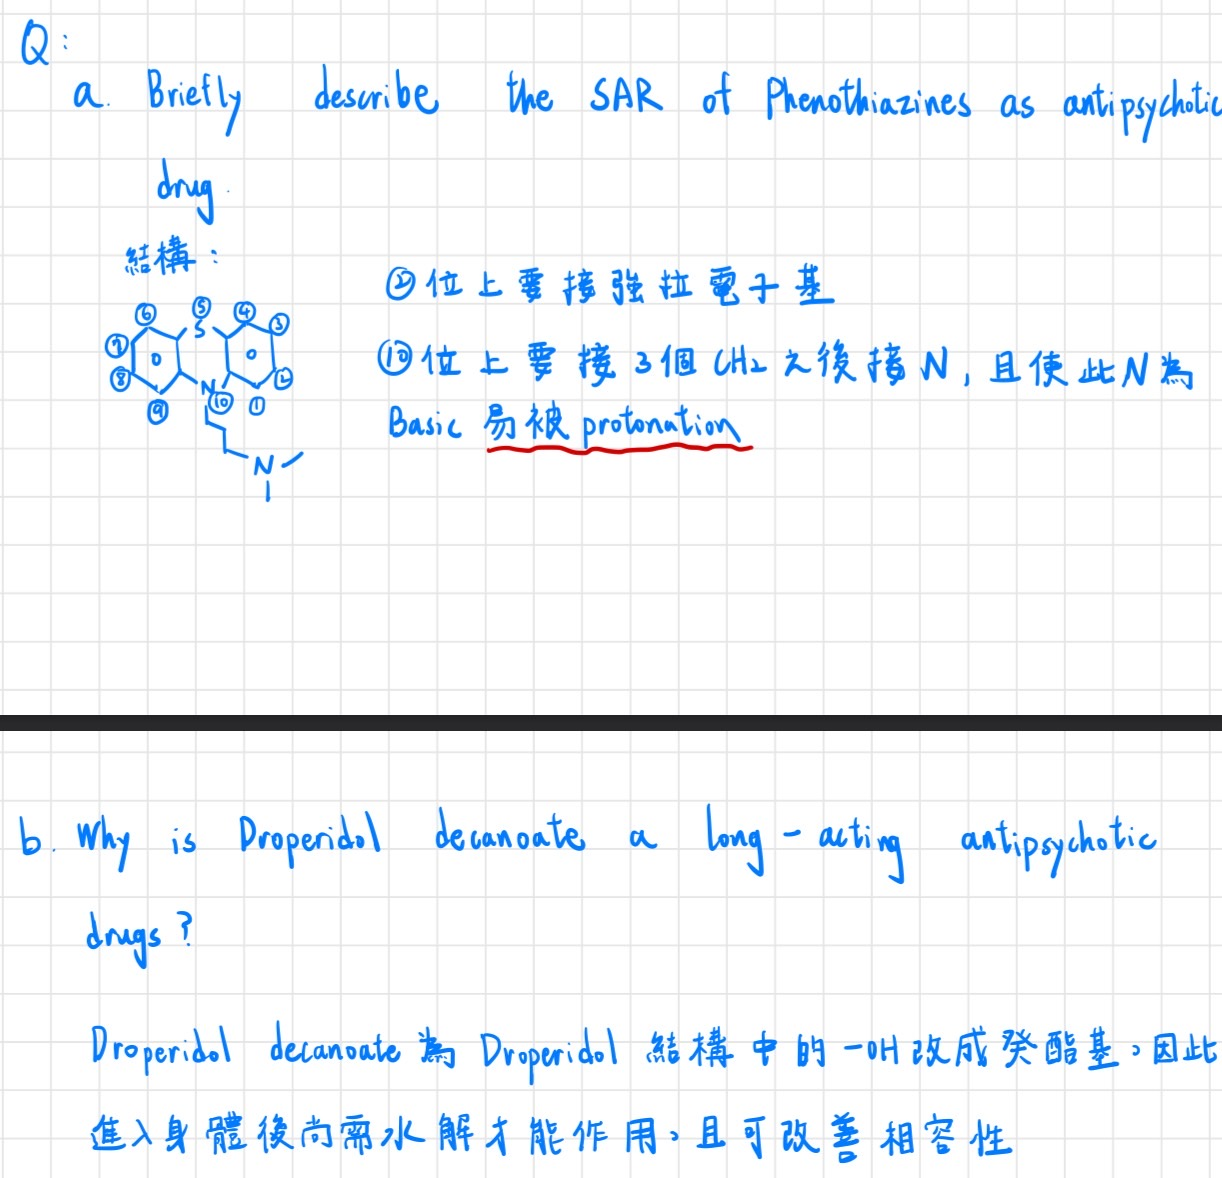 Q:
a. Briefly describe the SAR of Phenothiazines as antipsychotic
drug.
結構:
②位上要接強拉電子基
⑩位上要接3個CH2之後接N,且使此N為
Basic 易被 protonation
⑥ ⑤ ④ ③
S
⑦
⑧ ②
N
⑨ ⑩ ①
N
b. Why is Droperidol decanoate a long-acting antipsychotic
drugs?
Droperidol decanoate 為 Droperidol 結構中的-OH改成癸酯基。因此
進入身體後尚需水解才能作用。且可改善相容性